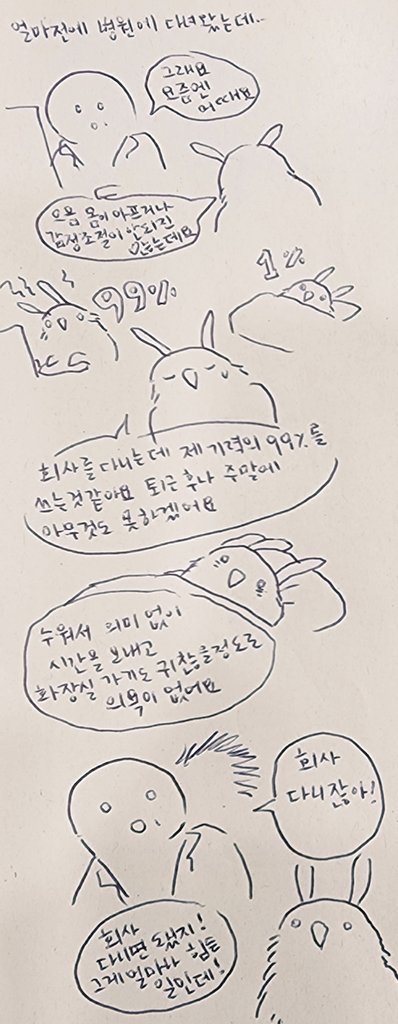 얼마전에 병원에 다녀왔는데..
그래요
요즘엔
어때요
으음 몸이 아프거나
감정조절이 안되진
않는데요
99%
1%
회사를 다니는데 제 기력의 99%를
쓰는것같아요 퇴근 후나 주말에
아무것도 못하겠어요
누워서 의미 없이
시간을 보내고
화장실 가기도 귀찮을정도로
의욕이 없어요
회사
다니잖아!
회사
다니면 됐지!
그게 얼마나 힘든
일인데!